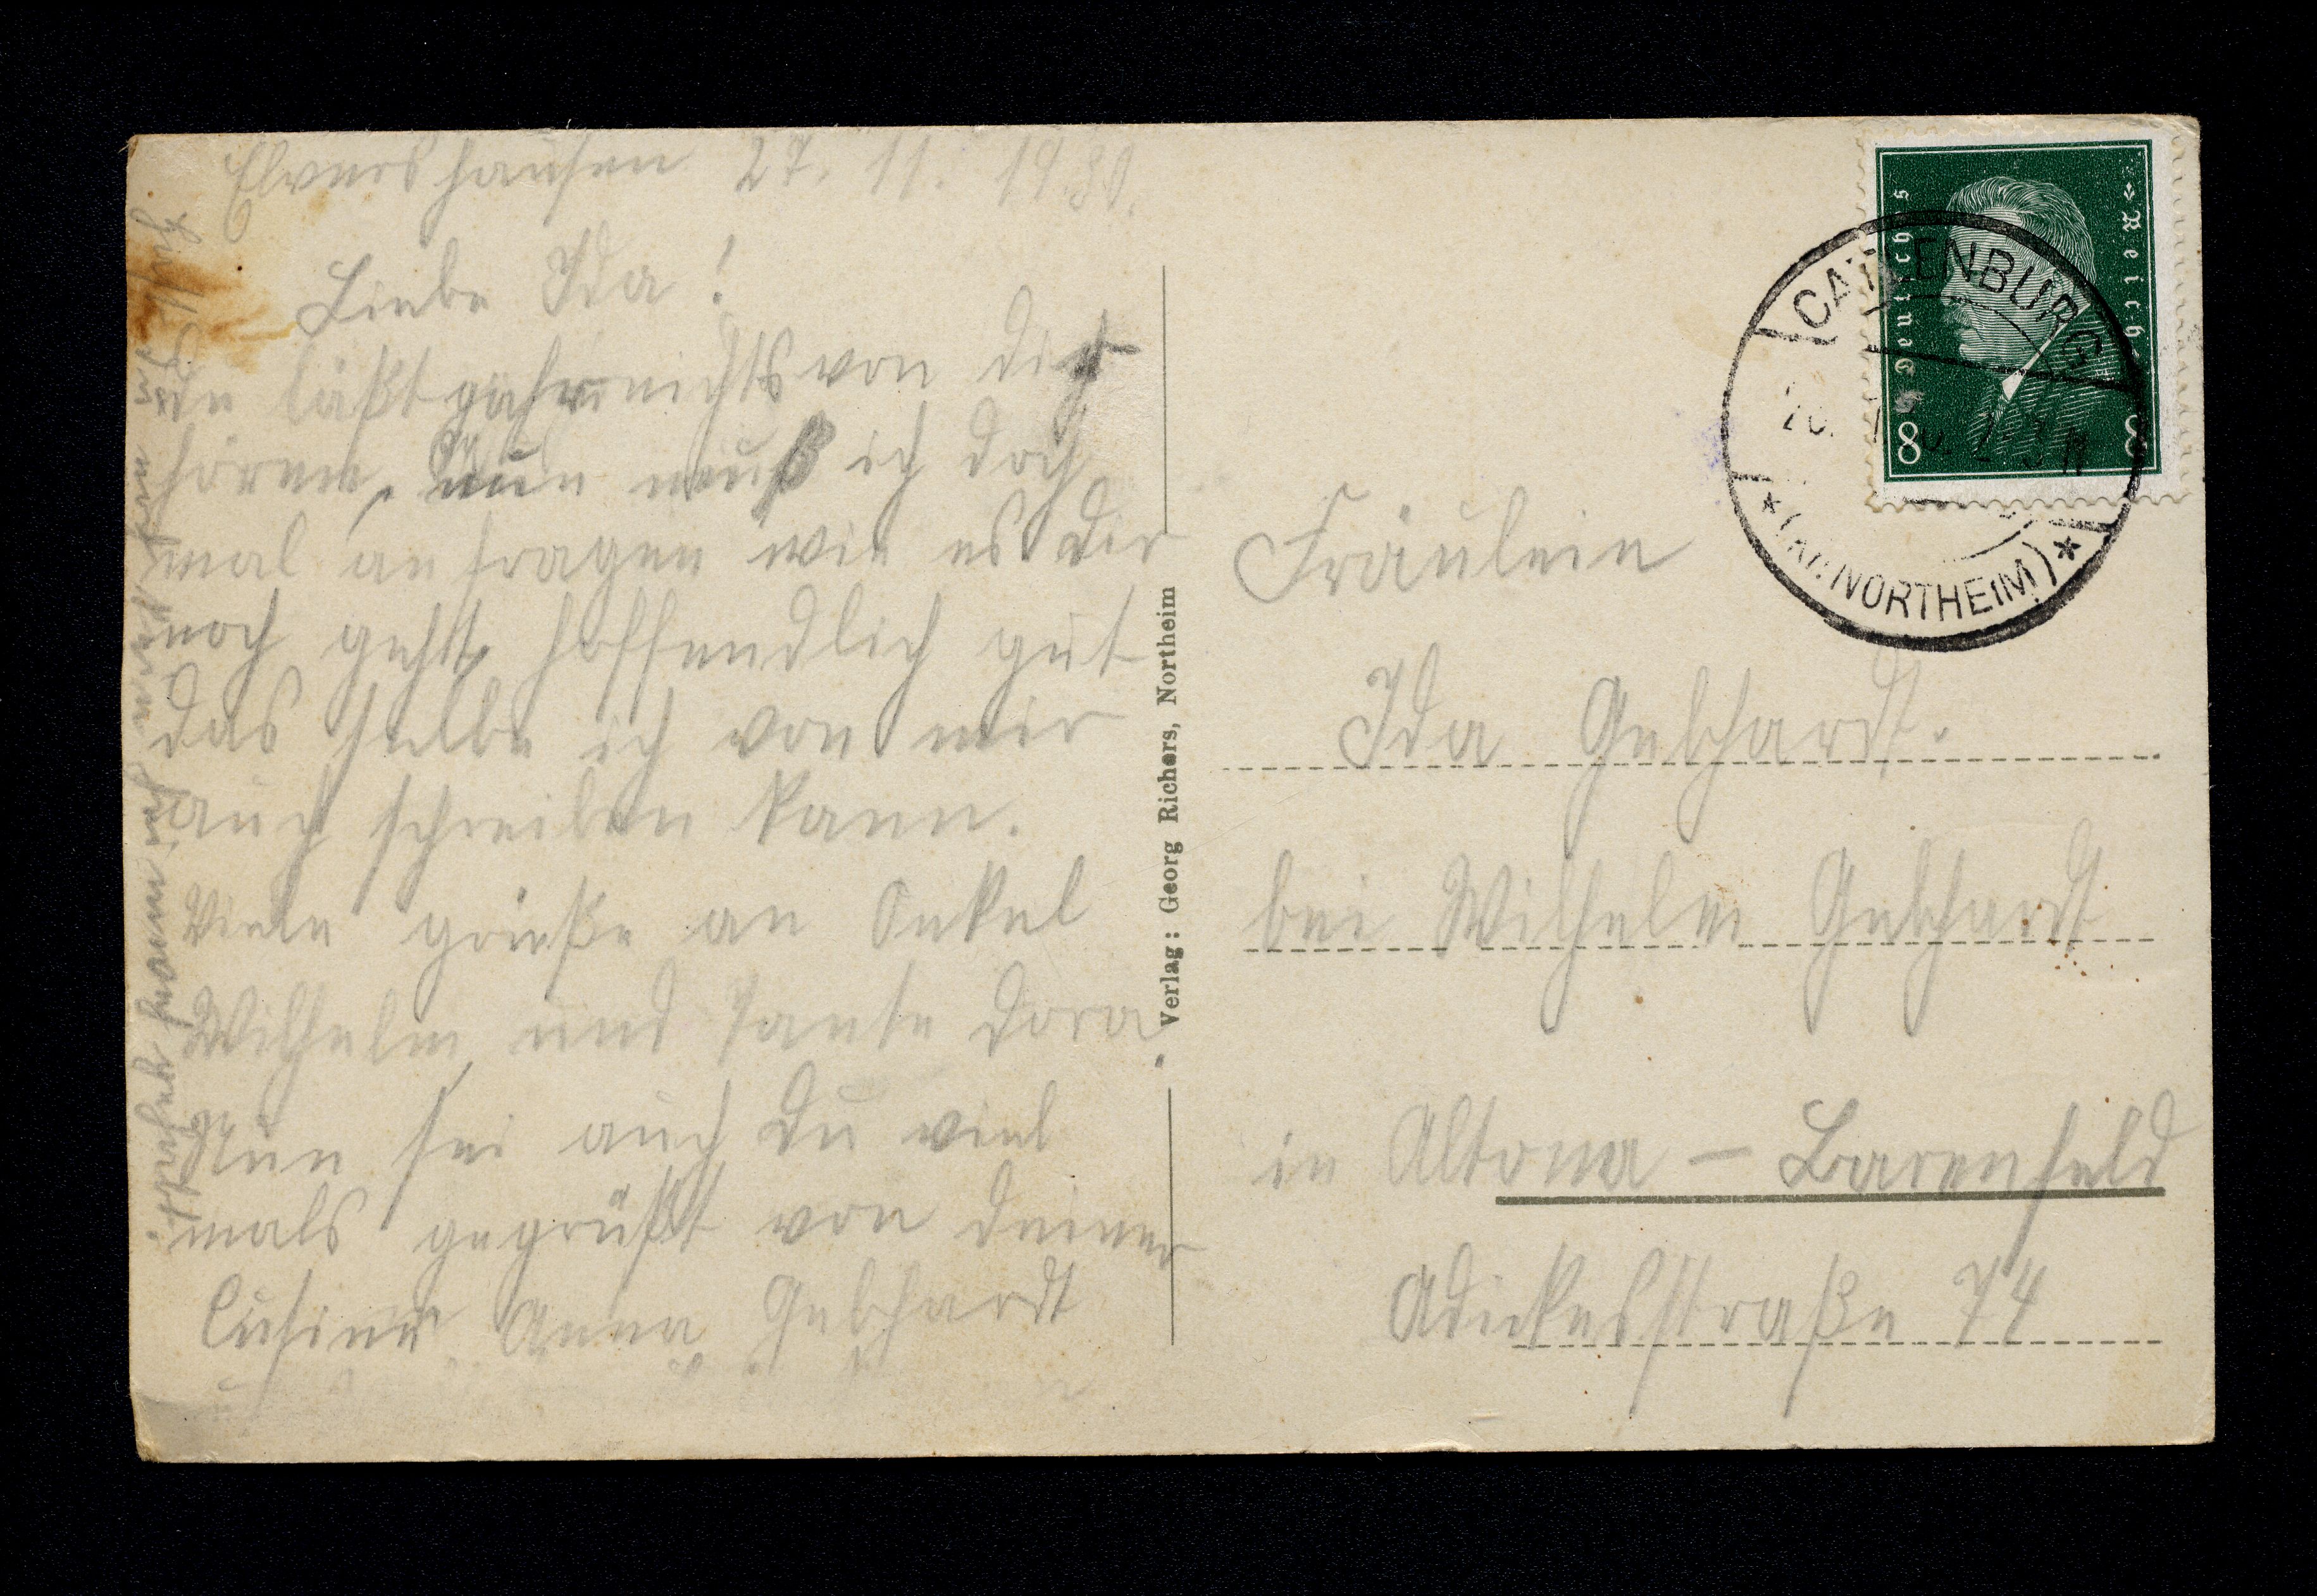 Elvershausen 27. 11. 1930.
Liebe Ida!
Du läßt gahrnichts von dir
hören, nun muß ich doch
mal anfragen wie es dir
noch geht, hoffendlich gut
das selbe ich von mir
auch schreiben kann.
Viele grüße an Onkel
Wilhelm und Tante Dora.
Nun sei auch Du viel
mals gegrüßt von deiner
Cusine Anna Gebhardt
Verlag: Georg Richers, Northeim
Deutsches Reich
8 8
CATLENBURG
(KR. NORTHEIM)
Fräulein
Ida Gebhardt.
bei Wilhelm Gebhardt
in Altona – Barenfeld
Adickesstraße 74